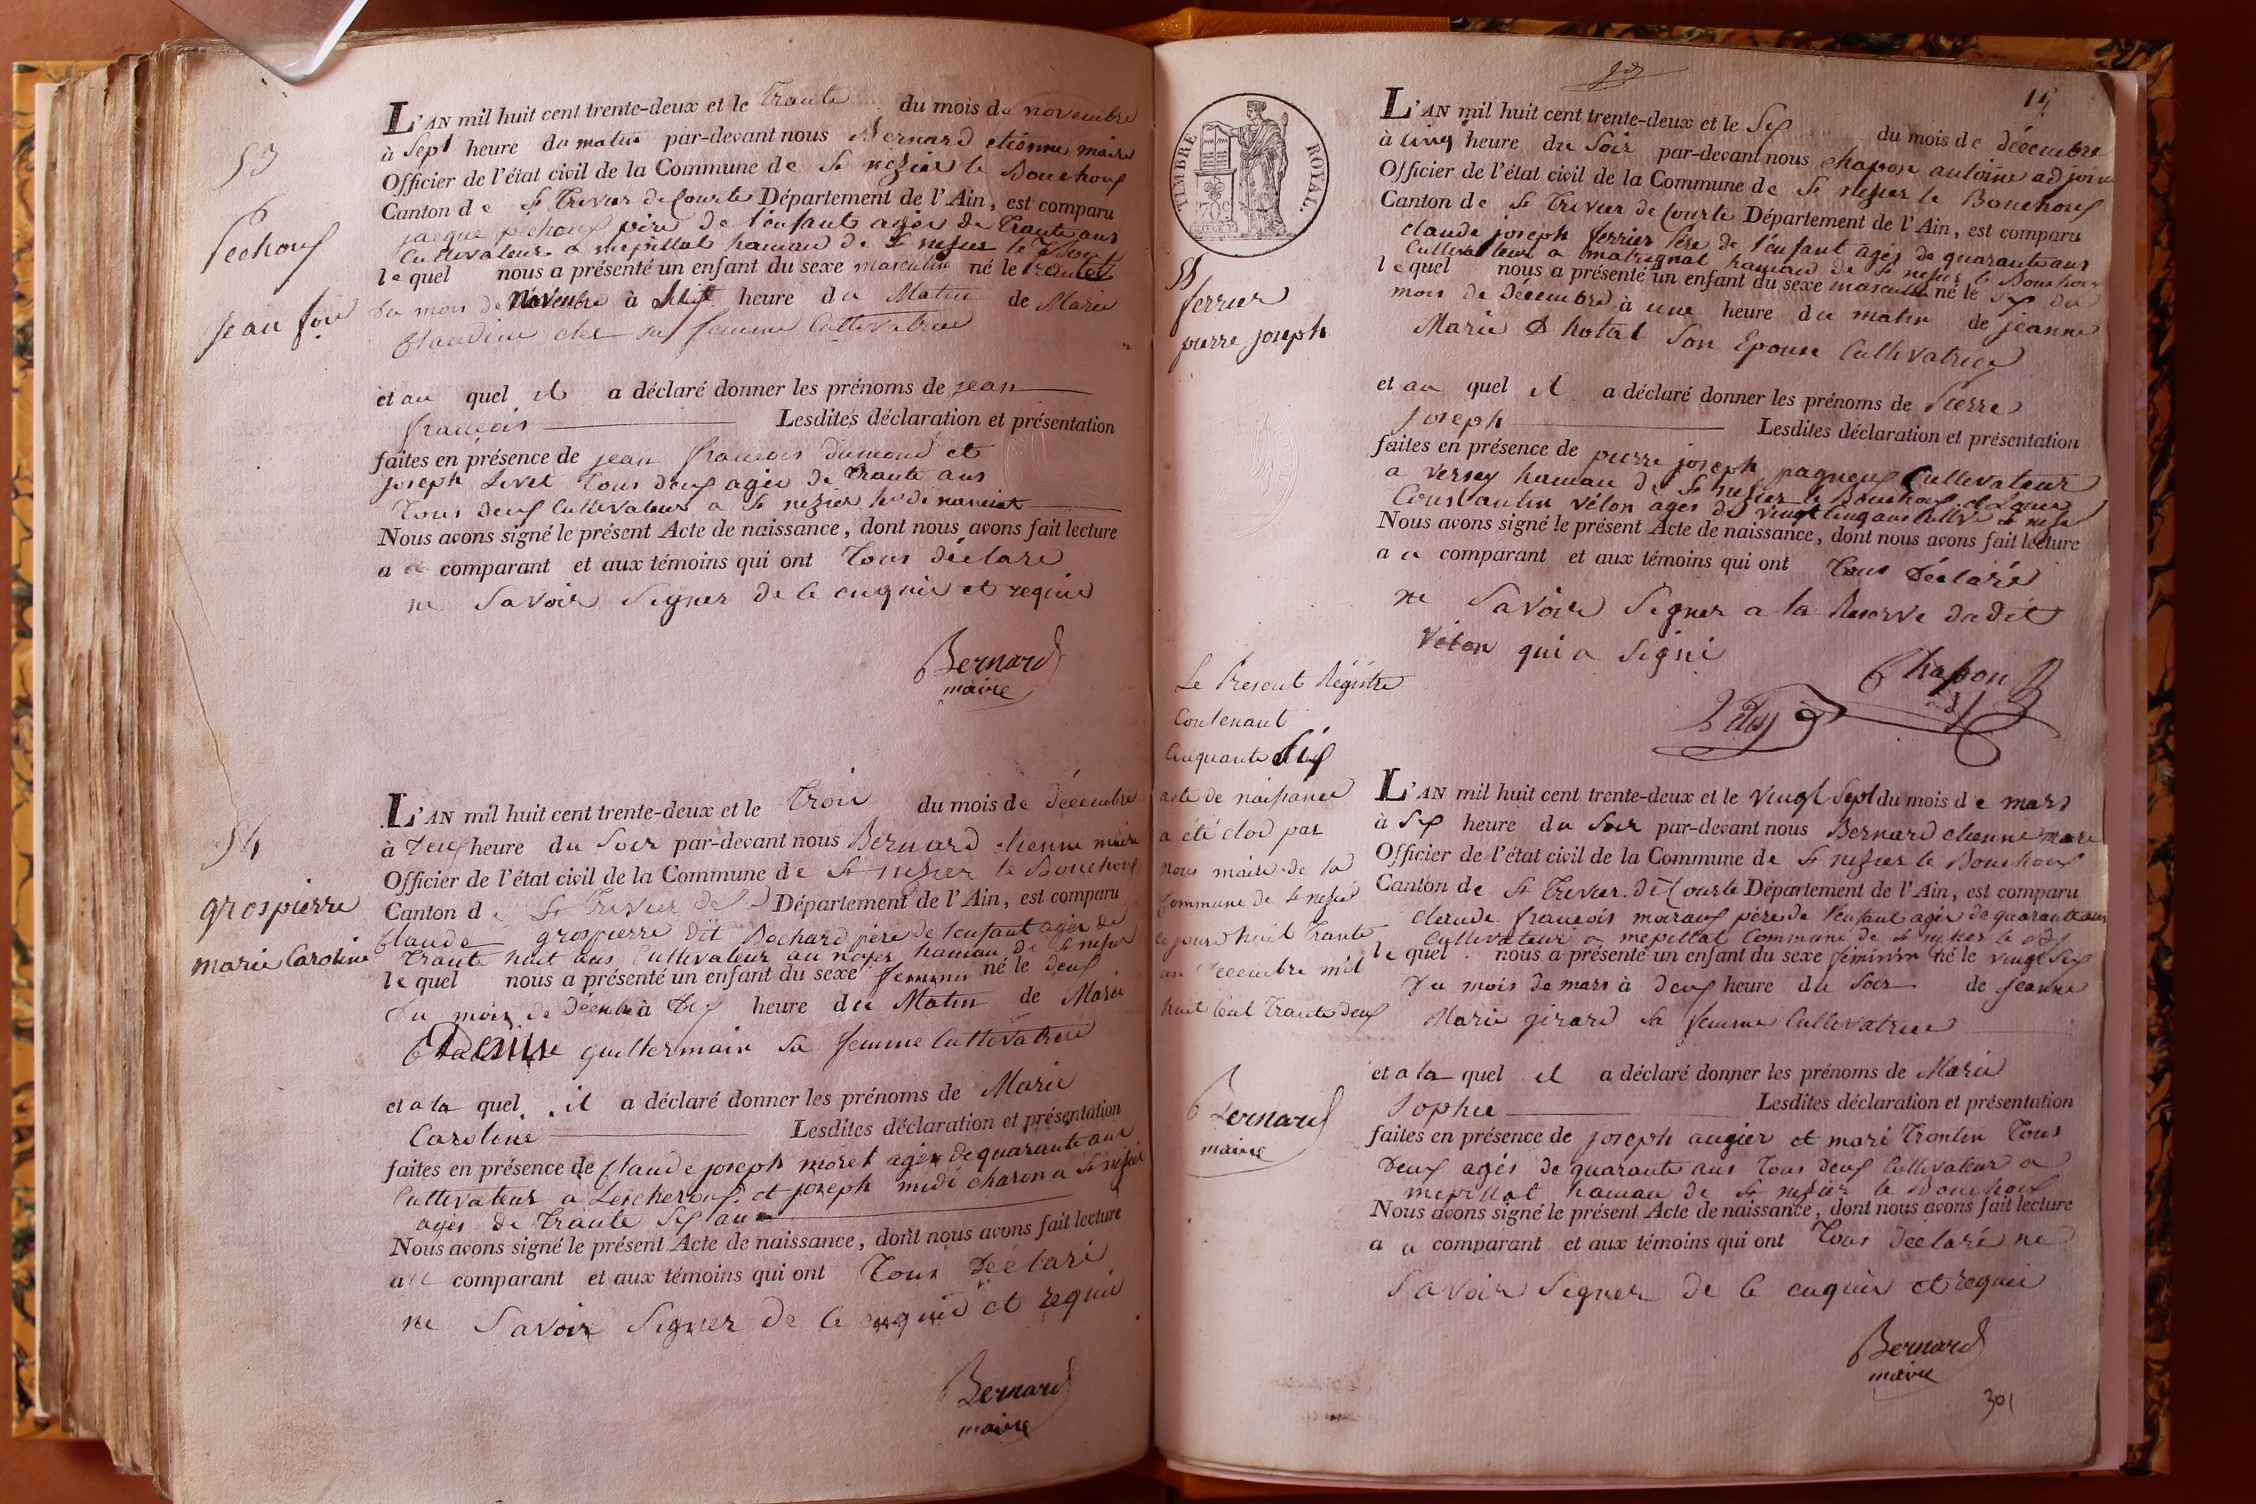 53
Pechoux
jean fois
L'AN mil huit cent trente-deux et le trante du mois de novembre
à Sept heure du matin par-devant nous Bernard etienne maire
Officier de l'état civil de la Commune de St nezier le Bouchoux
Canton de St Trivier de Courte Département de l'Ain, est comparu
jacque pechoux père de l'enfant agée de Trante ans
Cultivateur a mepillat hameau de St nezier le Bout
lequel nous a présenté un enfant du sexe masculin né le
du mois de Novembre à heure du Matin de Marie
Claudine sa femme Cultivatrice
et au quel il a déclaré donner les prénoms de jean
françois Lesdites déclaration et présentation
faites en présence de jean françois dumond et
joseph Livet Tous deux agée de Trante ans
Tous deux Cultivateur a St nezier
Nous avons signé le présent Acte de naissance, dont nous avons fait lecture
a comparant et aux témoins qui ont Tous déclare
ne Savoir Signer de le enquie et requie
Bernard
maire
54
grospierre
marie Caroline
L'AN mil huit cent trente-deux et le trois du mois de décembre
à deux heure du Soir par-devant nous Bernard etienne maire
Officier de l'état civil de la Commune de St nezier le Bouchoux
Canton de St Trivier de Département de l'Ain, est comparu
Claude grospierre dit Bochard père de l'enfant agée de
Trante huit ans Cultivateur au noyer hameau de St nezier
lequel nous a présenté un enfant du sexe feminin né le deux
du mois de Décembre à Dix heure du Matin de Marie
Denise guillermain sa femme Cultivatrice
et a la quel il a déclaré donner les prénoms de Marie
Caroline Lesdites déclaration et présentation
faites en présence de Claude joseph moret agée de quarante ans
Cultivateur a Lescheroux et joseph midé charon a St nezier
agés de Trante Six ans
Nous avons signé le présent Acte de naissance, dont nous avons fait lecture
au comparant et aux témoins qui ont Tous Déclaré
ne Savoir Signer de le enquie et requie
Bernard
maire
15
TIMBRE ROYAL.
55
ferrier
pierre joseph
L'AN mil huit cent trente-deux et le Six du mois de décembre
à Cinq heure du Soir par-devant nous Chapon antoine adjoint
Officier de l'état civil de la Commune de St nezier le Bouchoux
Canton de St Trivier de Courte Département de l'Ain, est comparu
Claude joseph ferrier Père de l'enfant agés de quarante ans
Cultivateur a matrignat hameau de St nezier le Bouchoux
lequel nous a présenté un enfant du sexe masculin né le Six du
mois de Décembre à une heure du matin de jeanne
Marie Chotal Son Epouse Cultivatrice
et au quel il a déclaré donner les prénoms de Pierre
Joseph Lesdites déclaration et présentation
faites en présence de pierre joseph pagneux Cultivateur
a versey hameau de St nezier le Bouchoux et Louis
Constantin véton agés de vingt cinq ans
Nous avons signé le présent Acte de naissance, dont nous avons fait lecture
au comparant et aux témoins qui ont Tous Déclaré
ne Savoir Signer a la Reserve dudit
Véton qui a Signé
Chapon
adj
Le Present Régistre
Contenant
Cinquante Six
acte de naissance
a été clos par
nous maire de la
Commune de St nezier
ce jourd'huit Trante
un Décembre mil
huit Cent Trante deux
Bernard
maire
L'AN mil huit cent trente-deux et le vingt Sept du mois de mars
à Six heure du Soir par-devant nous Bernard etienne maire
Officier de l'état civil de la Commune de St nezier le Bouchoux
Canton de St Trivier de Courte Département de l'Ain, est comparu
Claude françois moiraux père de l'enfant agée de quarante ans
Cultivateur a mepillat Commune de St nezier le
lequel nous a présenté un enfant du sexe féminin né le vingt Six
du mois de mars à deux heure du Soir de jeanne
Marie girard sa femme Cultivatrice
et a la quel il a déclaré donner les prénoms de Marie
Sophie Lesdites déclaration et présentation
faites en présence de joseph augier et marie Trontin Tous
Deux agés de quarante ans Tous deux Cultivateur a
mepillat hameau de St nezier le Bouchoux
Nous avons signé le présent Acte de naissance, dont nous avons fait lecture
au comparant et aux témoins qui ont Tous déclaré ne
Savoir Signer de le enquie et requie
Bernard
maire
301